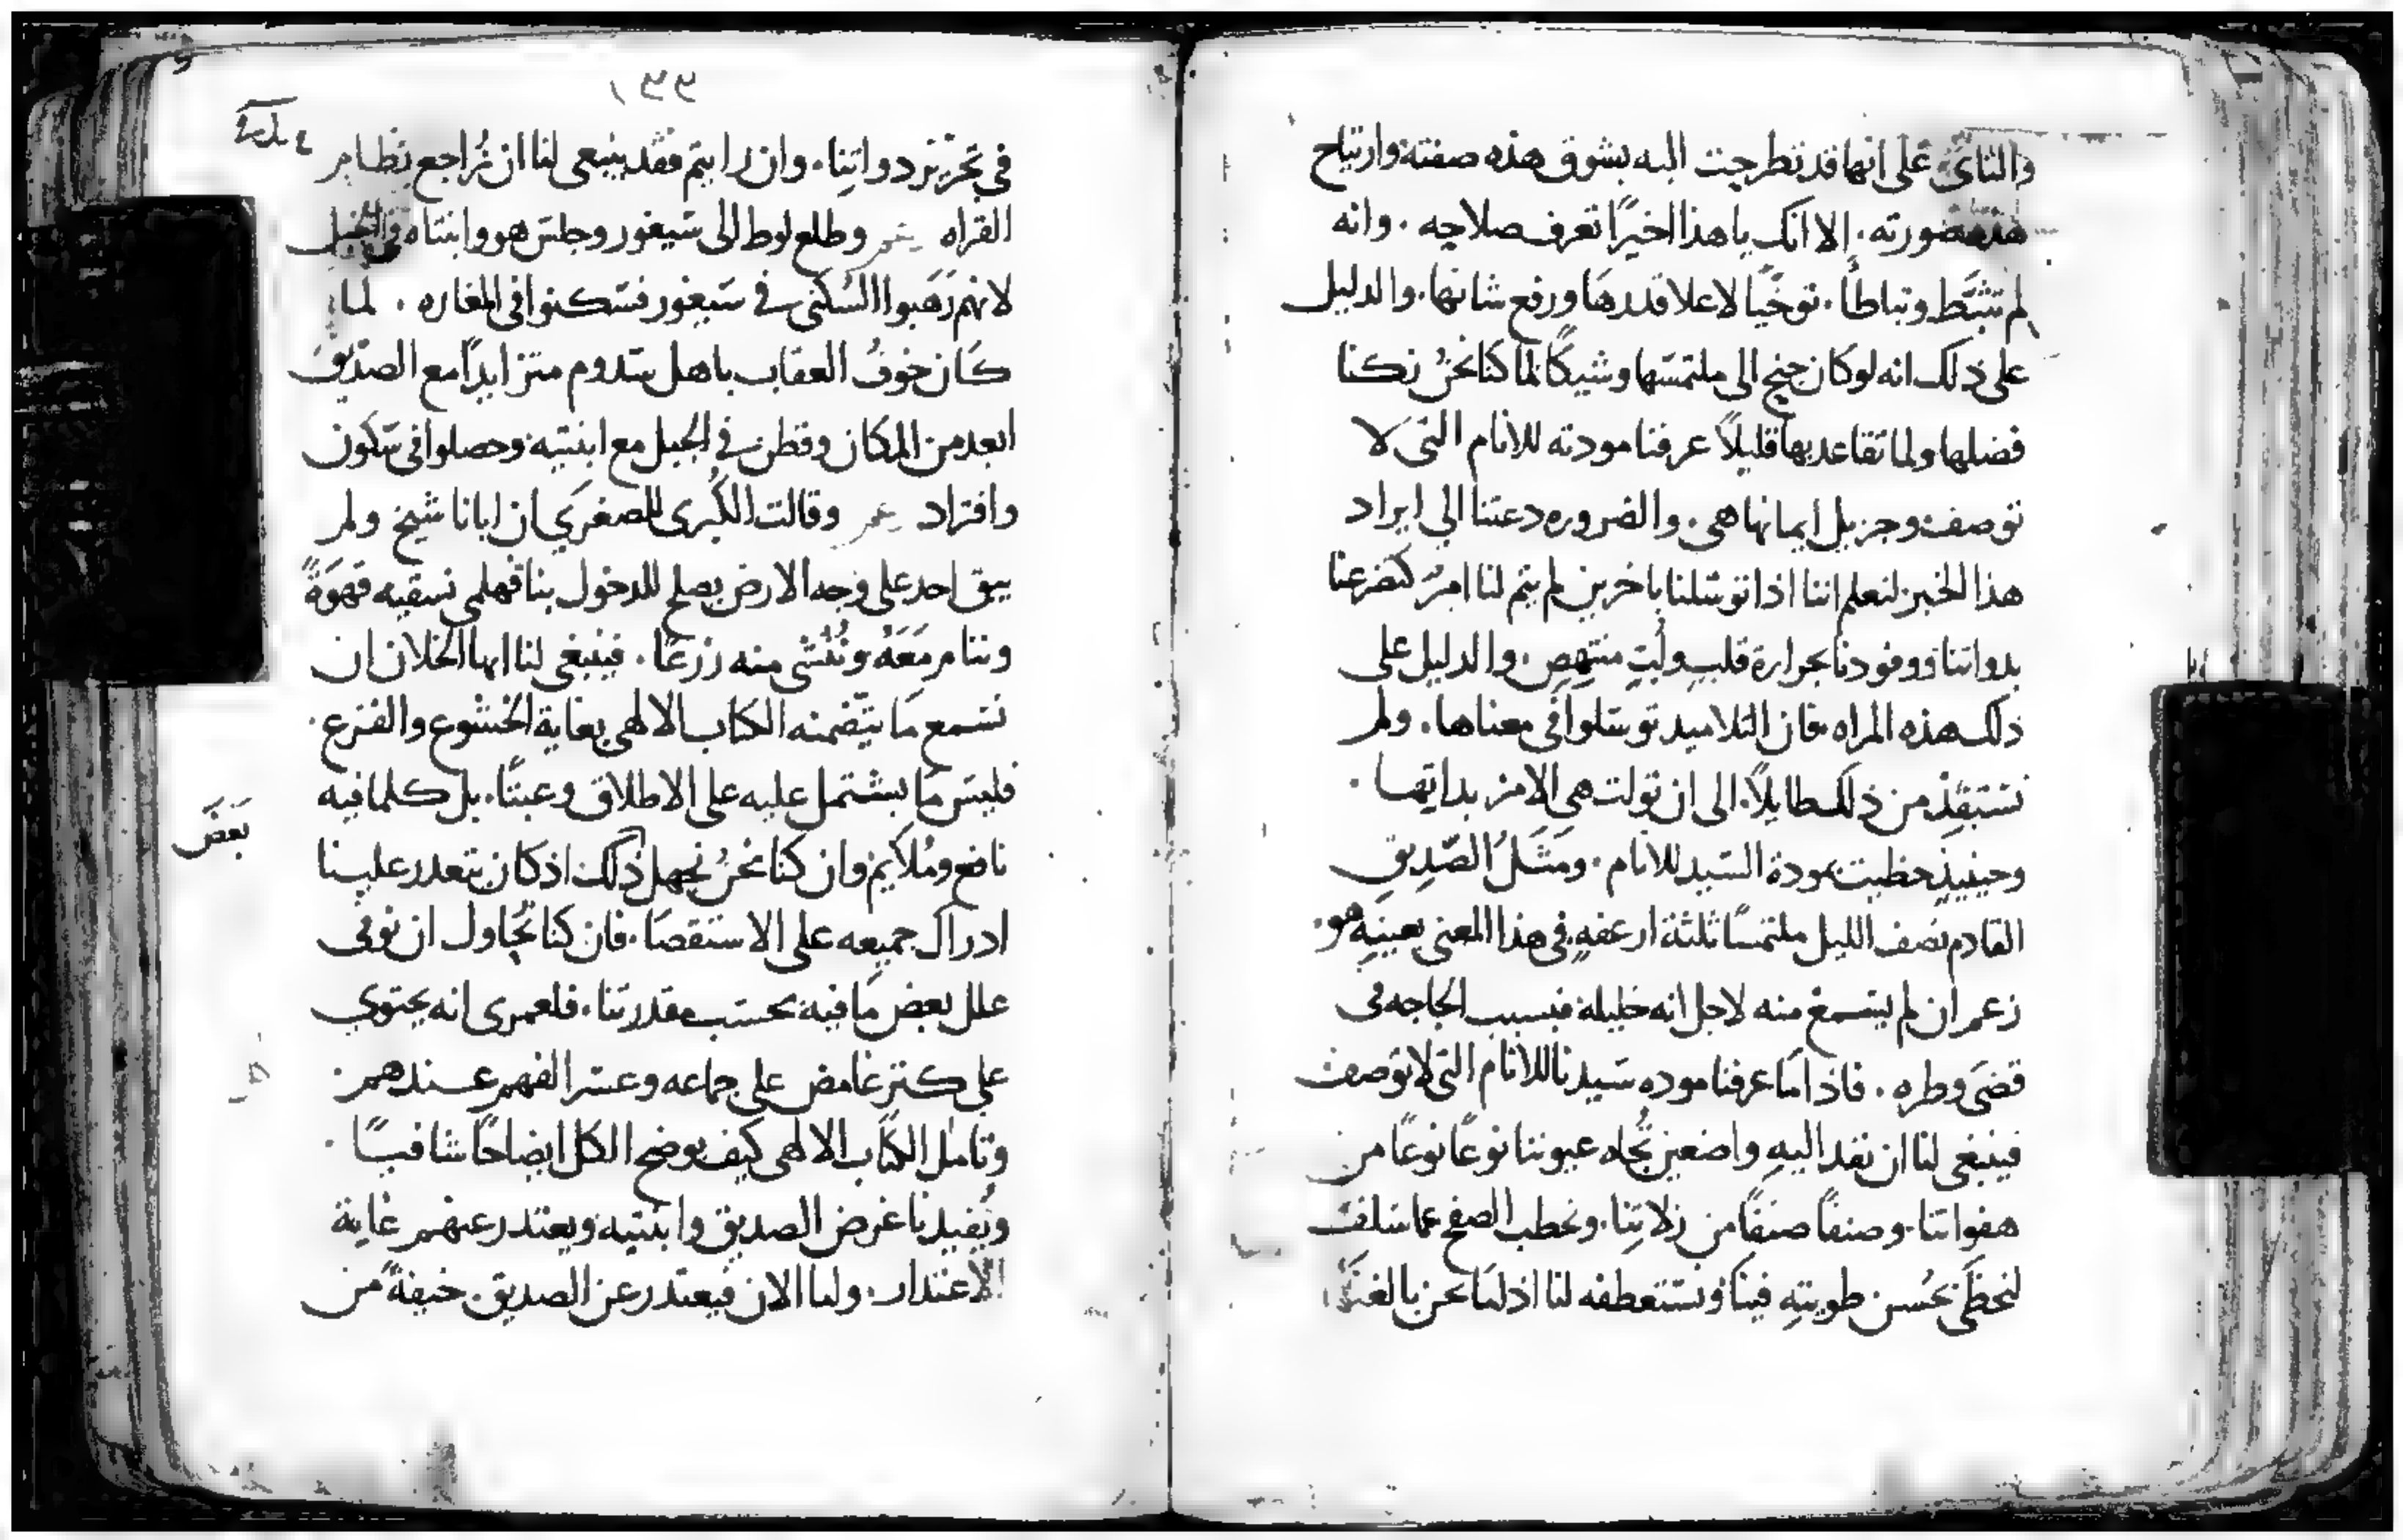 والثانى على انها قد تطرحت اليه بشوق هذه صفته وارتياح
هذه صورته. الا انك ياهذا اخيرًا تعرف صلاحه. وانه
لم تثبَّط وتباطأ. توخّيًا لاعلا قدرها ورفع شانها. والدليل
على ذلك انه لوكان جنح الى ملتمسَها وشيكًا لما كنا نحنُ زكنا
فضلها ولما تقاعد بها قليلاً عرفنا مودته للانام التى لا
توصف وجزيل ايمانها هى. والضروره دعتنا الي ايراد
هذا الخبر لنعلم اننا اذا توسّلنا باخرين لم يتم لنا امرٌ كتضرعنا
بدواتنا ووفودنا بحرارة قلب ولُبٍ منتهصٍ. والدليل على
ذلك هذه المراه فان التلاميد توسّلوا فى معناها. ولم
تستفِذ من ذلك طايلاً. الى ان تولت هى الامر بداتها.
وحينيذٍ حظيت بمودة السّيد للانام. ومَثَلُ الصّدِيقِ
القادم نصف الليل ملتمسًا ثلثة ارغفهٍ فى هذا المعنى بعينِهِ هو.
زعم ان لم يسمع منه لاجل انه خليله فبسبب الحاجه فى
قضىَ وطره. فاذا مَا عرفنا موده سَيدنا للانام التى لا توصف
فينبغى لنا ان نفد اليهِ واضعين تُجاه عيوننا نوعًا نوعًا من
هفواتنا. وصنفًا صنفًا من زلاتِنا. ونخطب الصفح عما سَلفت
لنحظَى بحُسن طويتهِ فينا ونستعطفه لنا اذ لسَنا نحن بالغين
١٩٩
في تحريْرِ دواتِنا. وان رايتم فقد ينبغى لنا ان نُراجع نظام
القراه وطلع لوط الى سَيغور وجلسَ هو وابنتاه فى الجبل
لانهم رَهَبوا السُكنى فى سَيغور فسَكنوا فى المغاره. لما
كَان خوفُ العقاب باهل سَدوم متزايدًا مع الصدّيق
ابعد من المكان وقطن فى الجبل مع ابنتيه وحصلوا فى سَكون
وافراد وقالت الكُبرى للصغرَي ان ابانا شيخ ولم
يبق احد على وجه الارض يصلح للدخول بنا فهلمى نسقيه قهوَةً
وننام مَعَهُ ونُنُشى منه زرعًا. فينبغى لنا ايها الخلان ان
نسَمع مَا يتَضمنه الكتاب الالهى بغاية الخشوع والفزع.
فليسَ مَا يشتمل عليه على الاطلاق وعبثًا. بل كلما فيه
نافع ومُلاَيم وان كنا نحنُ نجهل ذلك اذ كان يتعدر علينا
بعضَ
ادراك جميعه على الاستقصَا. فان كنا نحُاول ان نوفى
علل بعض مَا فيه بحسَب مقدرتنا. فلعمرى انه يحتوي
علي كنز غامض على جماعه وعسَر الفهم عندهم.
وتامل الكتاب الالهى كيف يوضح الكل ايضاحًا شافيًا.
ويُفيدنا غرض الصديق وابنتيه ويعتدر عنهم غاية
الاعتدار. ولما الان فيعتدر عن الصديق. خيفةً من